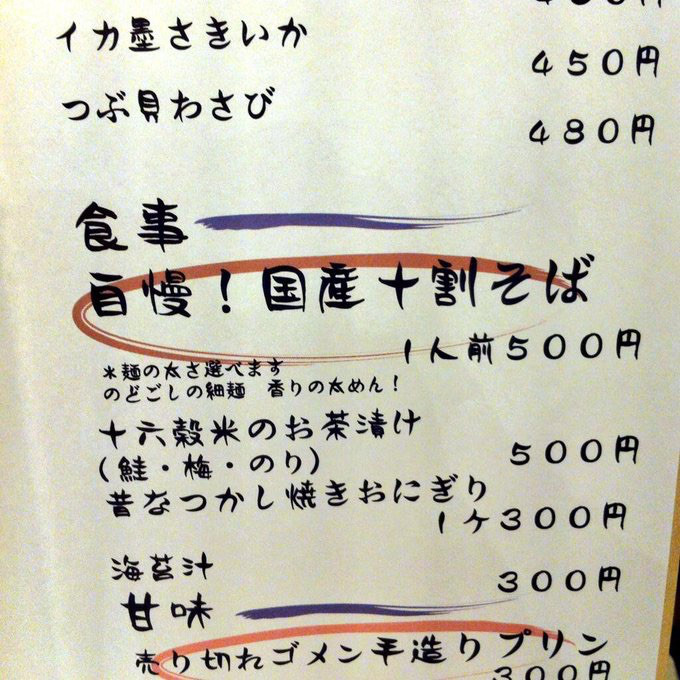 イカ墨さきいか
450円
つぶ貝わさび
480円
食事
自慢！国産十割そば
1人前500円
＊麺の太さ選べます
のどごしの細麺　香りの太めん！
十六穀米のお茶漬け
(鮭・梅・のり)
500円
昔なつかし焼きおにぎり
1ケ300円
海苔汁
300円
甘味
売り切れゴメン手造りプリン
300円